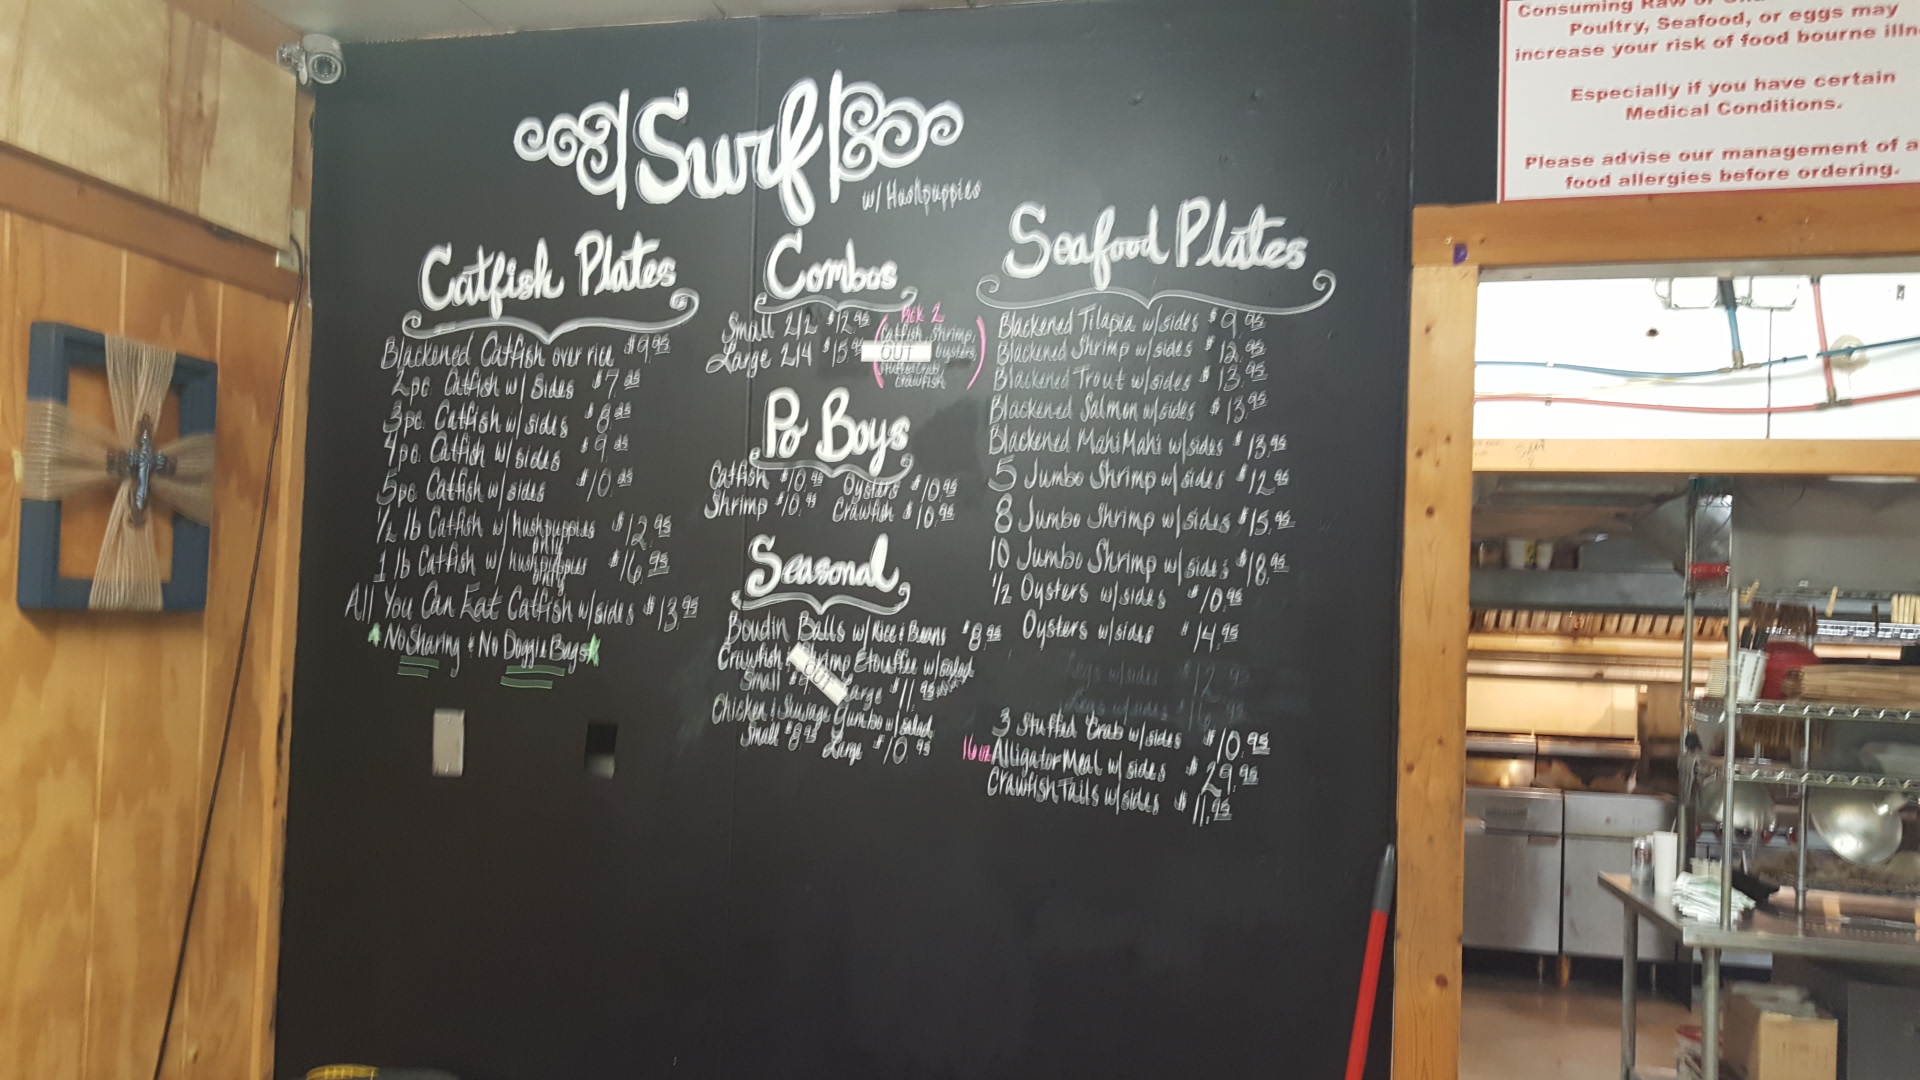 Surf
w/ Hushpuppies
Catfish Plates
Blackened Catfish over rice $9.95
2pc Catfish w/ Sides $7.25
3pc. Catfish w/ sides $8.25
4pc. Catfish w/ sides $9.25
5pc. Catfish w/ sides $10.25
1/2 lb Catfish w/ hushpuppies $12.95
only
1 lb Catfish w/ hushpuppies $16.95
only
All You Can Eat Catfish w/ sides $13.95
No Sharing & No Doggie Bags
Combos
Small 2/2 $12.95
Large 2/4 $15.95
Pick 2
Catfish, Shrimp,
OUT Oysters,
Stuffed Crab,
Crawfish
Po Boys
Catfish $10.95 Oysters $10.95
Shrimp $10.95 Crawfish $10.95
Seasonal
Boudin Balls w/ Rice & Beans $8.95
Crawfish & Shrimp Etouffee w/ salad
Small OUT Large $11.95
Chicken & Sausage Gumbo w/ salad
Small $8.95 Large $10.95
Seafood Plates
Blackened Tilapia w/ sides $9.95
Blackened Shrimp w/ sides $12.95
Blackened Trout w/ sides $13.95
Blackened Salmon w/ sides $13.95
Blackened Mahi Mahi w/ sides $13.95
5 Jumbo Shrimp w/ sides $12.95
8 Jumbo Shrimp w/ sides $15.95
10 Jumbo Shrimp w/ sides $18.95
1/2 Oysters w/ sides $10.95
Oysters w/ sides $14.95
Legs w/ sides $12.95
Legs w/ sides
3 Stuffed Crab w/ sides $10.95
16 oz Alligator Meal w/ sides $29.95
Crawfish Tails w/ sides $11.95
Consuming Raw or
Poultry, Seafood, or eggs may
increase your risk of food bourne illn
Especially if you have certain
Medical Conditions.
Please advise our management of a
food allergies before ordering.